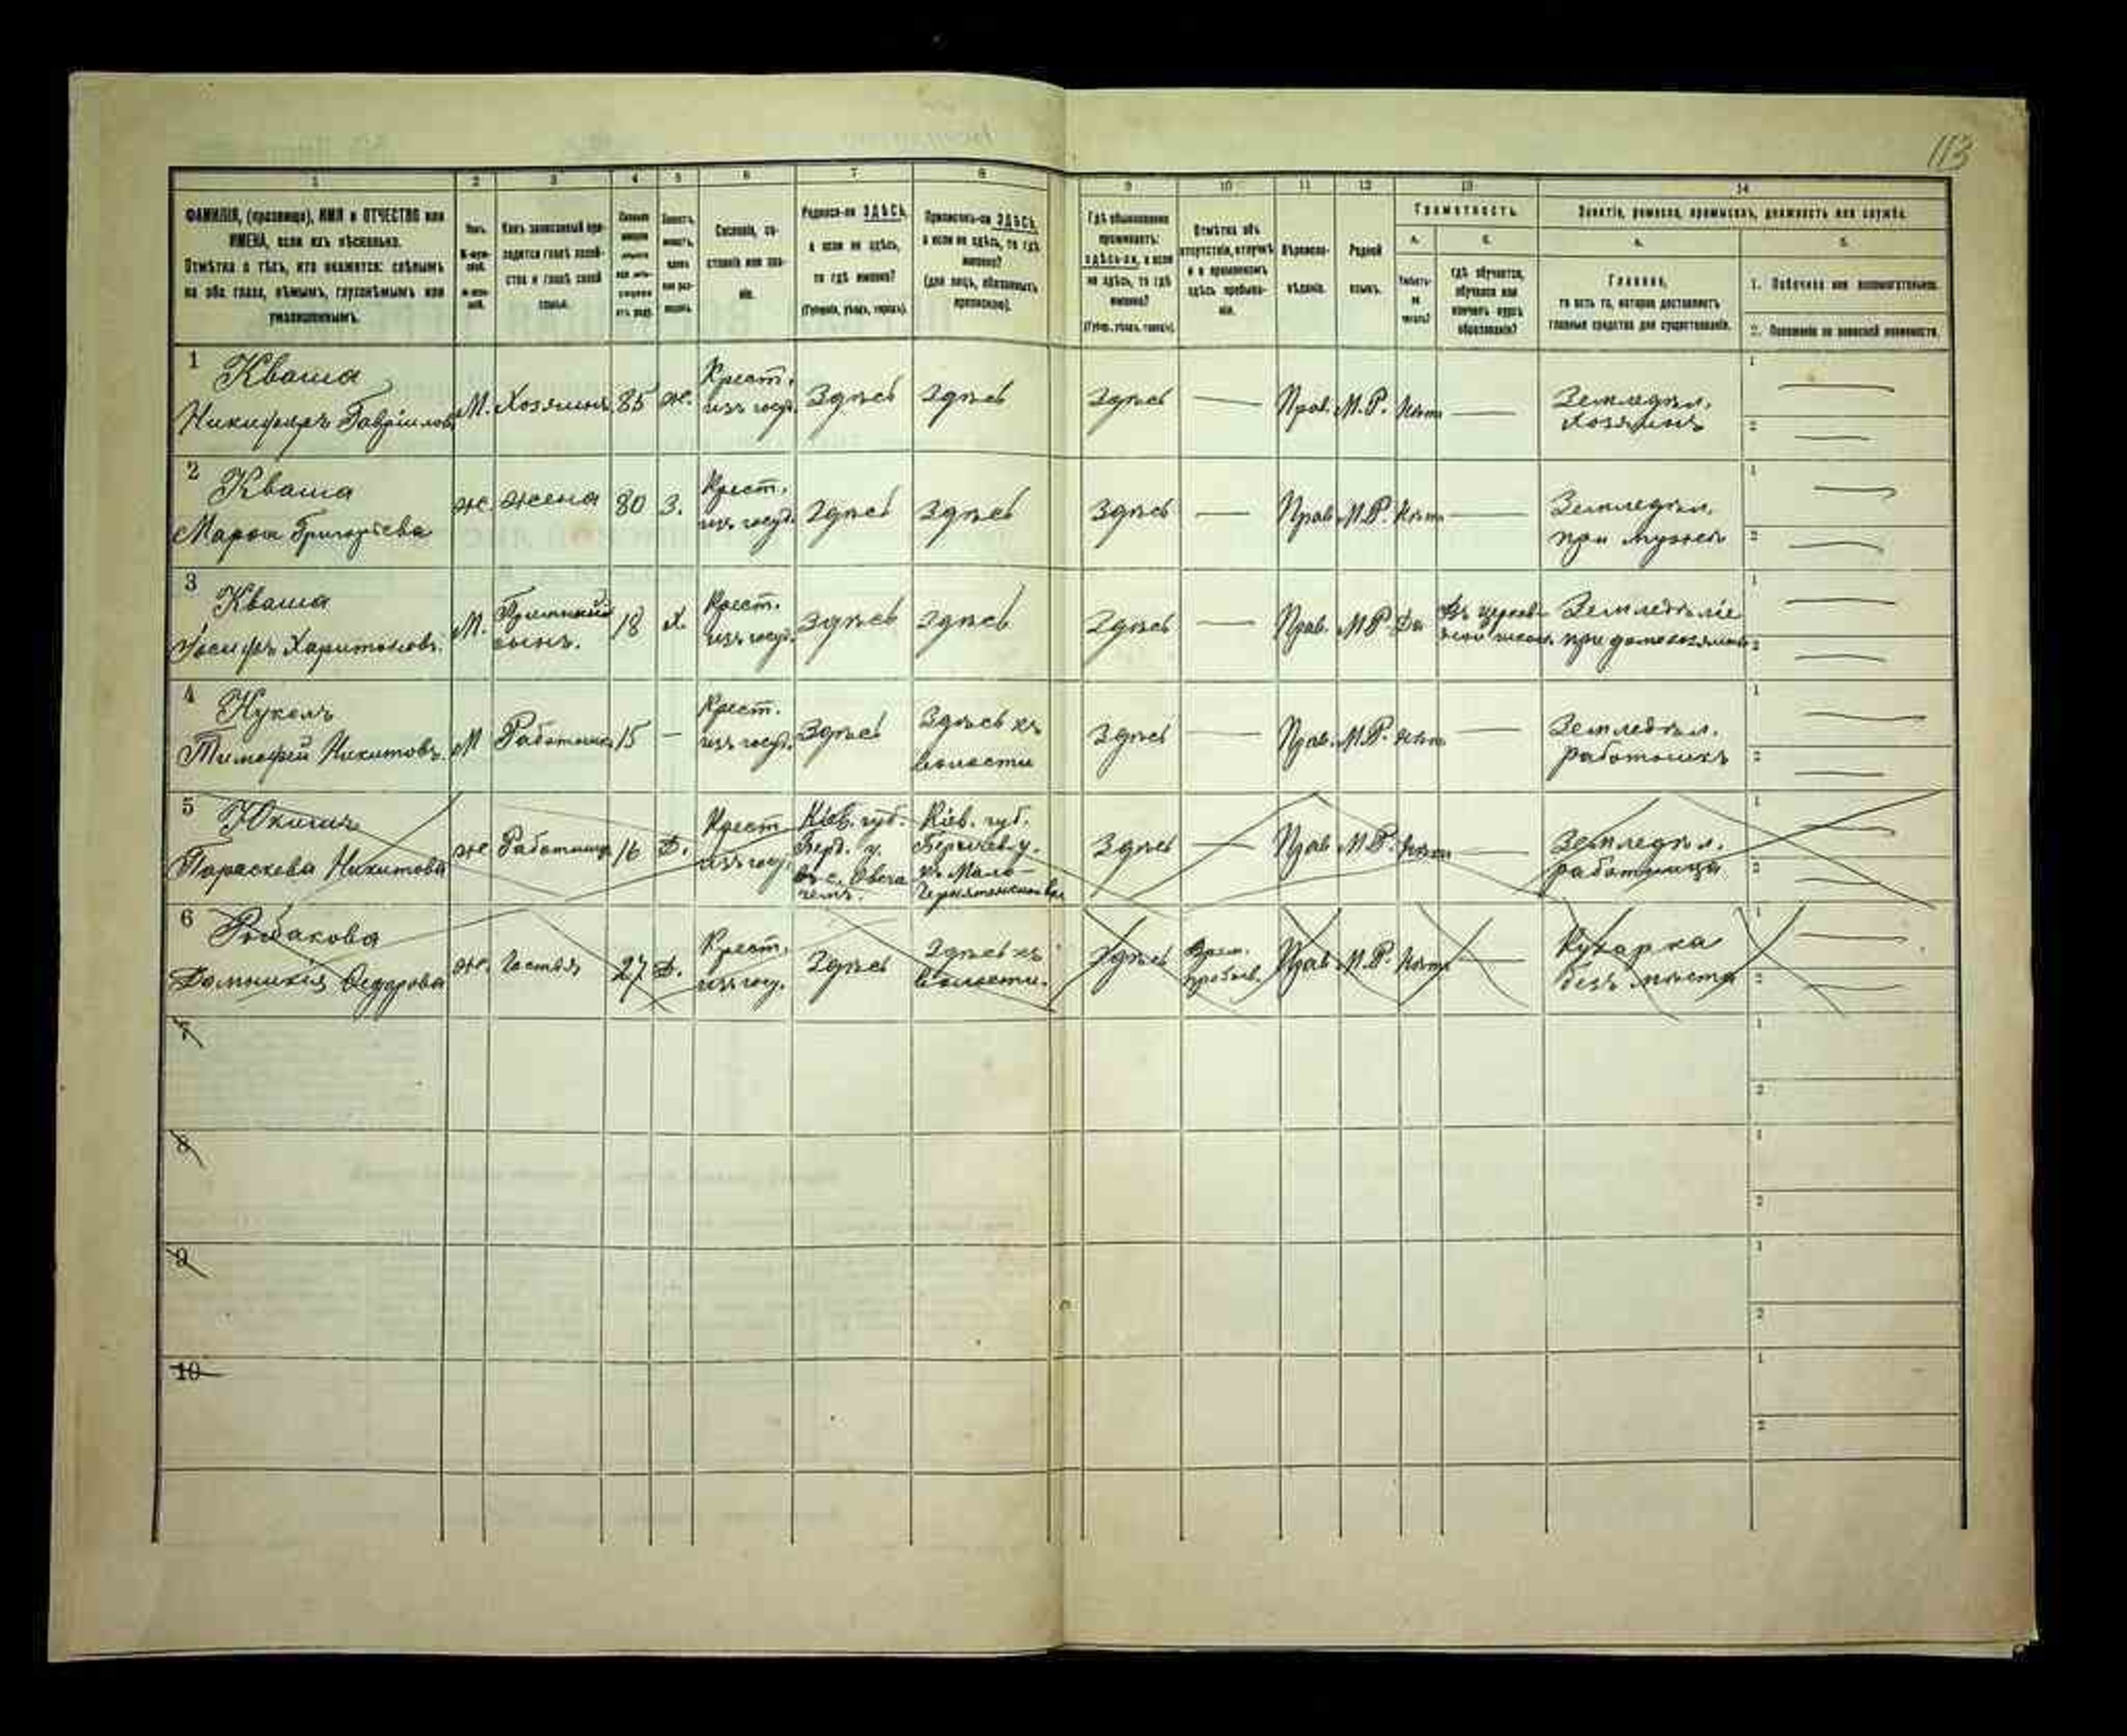 113
1 2 3 4 5 6 7 8 9 10 11 12 13 14
ФАМИЛІЯ, (прозвище), ИМЯ и ОТЧЕСТВО или
ИМЕНА, если ихъ нѣсколько.
Отмѣтка о тѣхъ, кто окажется: слѣпымъ
на оба глаза, нѣмымъ, глухонѣмымъ или
умалишеннымъ.
Полъ.
Какъ записанный при-
ходится главѣ хозяй-
ства и главѣ своей
семьи.
Сословіе, со-
стояніе или зва-
ніе.
Родился-ли ЗДѢСЬ,
а если не здѣсь,
то гдѣ именно?
(Губернія, уѣздъ, городъ).
Приписанъ-ли ЗДѢСЬ,
а если не здѣсь, то гдѣ
именно?
(для лицъ, обязанныхъ
припискою).
Гдѣ обыкновенно
проживаетъ:
здѣсь-ли, а если
не здѣсь, то гдѣ
именно?
(Губер., уѣздъ, городъ).
Отмѣтка объ
отсутствіи, отлучкѣ
и о временномъ
здѣсь пребыва-
ніи.
Вѣроиспо-
вѣданіе.
Родной
языкъ.
Грамотность.
а. б.
Умѣетъ-
ли
читать?
гдѣ обучается,
обучался или
кончилъ курсъ
образованія?
Занятіе, ремесло, промыселъ, должность или служба.
а. б.
Главное,
то есть то, которое доставляетъ
главныя средства для существованія.
1. Побочное или вспомогательное.
2. Положеніе по воинской повинности.
1 Кваша
Никифоръ Гавріиловъ М. Хозяинъ 85 ж. Крест. изъ госуд. Здѣсь Здѣсь Здѣсь — Прав. М.Р. Нѣтъ — Земледѣл. хозяинъ
1
2
2 Кваша
Марѳа Григорьева ж. жена 80 З. Крест. изъ госуд. Здѣсь Здѣсь Здѣсь — Прав. М.Р. Нѣтъ — Земледѣл. при мужѣ
1
2
3 Кваша
Іосифъ Харитоновъ. М. сынъ. 18 Х. Крест. изъ госуд. Здѣсь Здѣсь Здѣсь — Прав. М.Р. Да Въ церков- Земледѣліе при домохозяинѣ
1
2
4
Тимофей Никитовъ. М Работникъ 15 — Крест. изъ госуд. Здѣсь Здѣсь къ волости Здѣсь — Прав. М.Р. Нѣтъ — Земледѣл. работникъ
1
2
5
Параскева Никитова ж Работница 16 Д. Крест. изъ госуд. Кіев. губ. Берд. у. въ с. Кіев. губ. Бердичев. у. къ Мало- Здѣсь — Прав. М.Р. Нѣтъ — Земледѣл. работница
1
2
6 Рыбакова
Домникія Ѳедорова ж. Гостья 27 Д. Крест. изъ госу. Здѣсь Здѣсь къ волости. Здѣсь Врем. пребыв. Прав. М.Р. Нѣтъ — Кухарка безъ мѣста
1
2
7
1
2
8
1
2
9
1
2
10
1
2